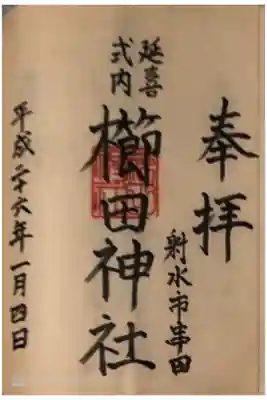 奉拝
射水市串田
延喜
式内
櫛田神社
平成二十六年一月四日